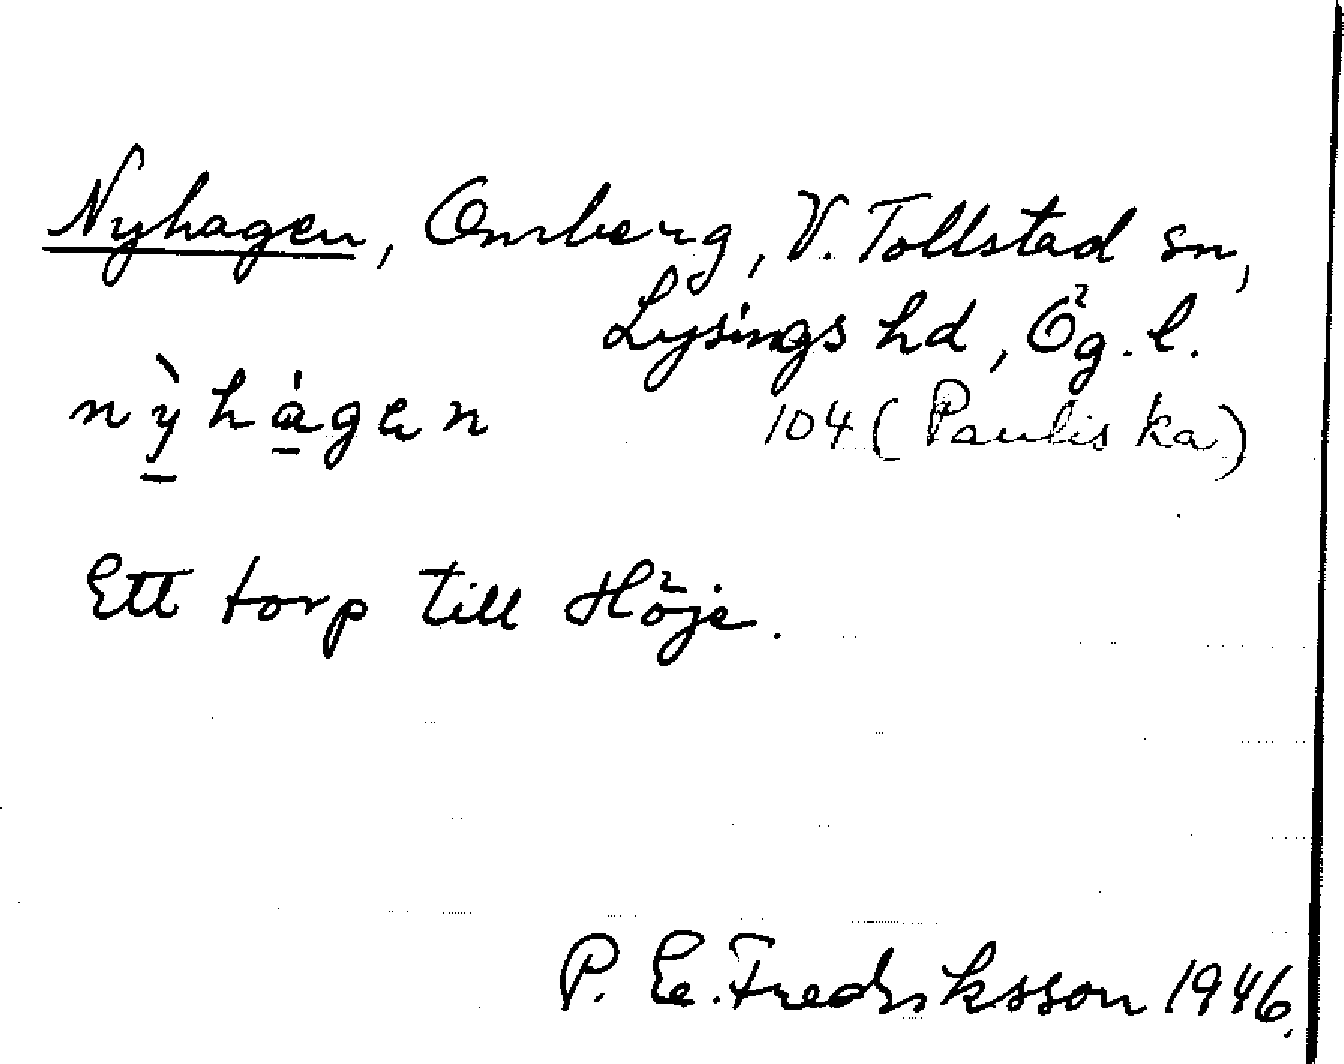 Nyhagen, Omberg, V. Tollstad sn,
Lysings hd, Ög. l.
nỳhágen
104 (Pauliska)
Ett torp till Höje.
P. E. Fredriksson 1946.